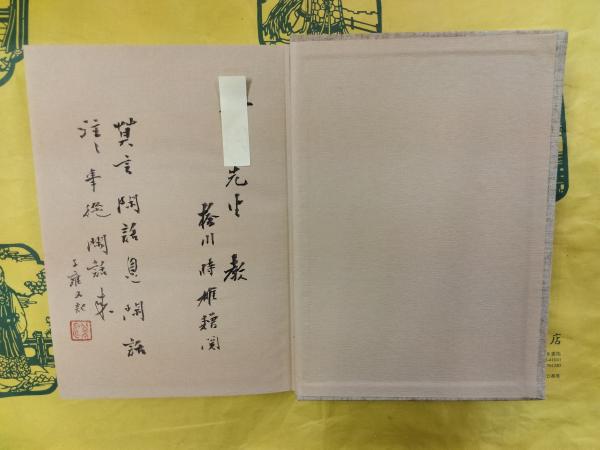 先生 教
橋川時雄
莫言閑話是閑話
往〻事從閑話來
子雍又記
店